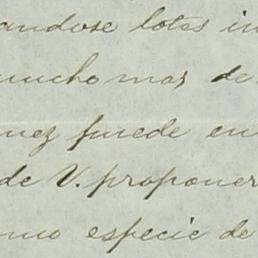 andose lotes in
mucho mas de
vez puede en
de V. proponer
omo especie de